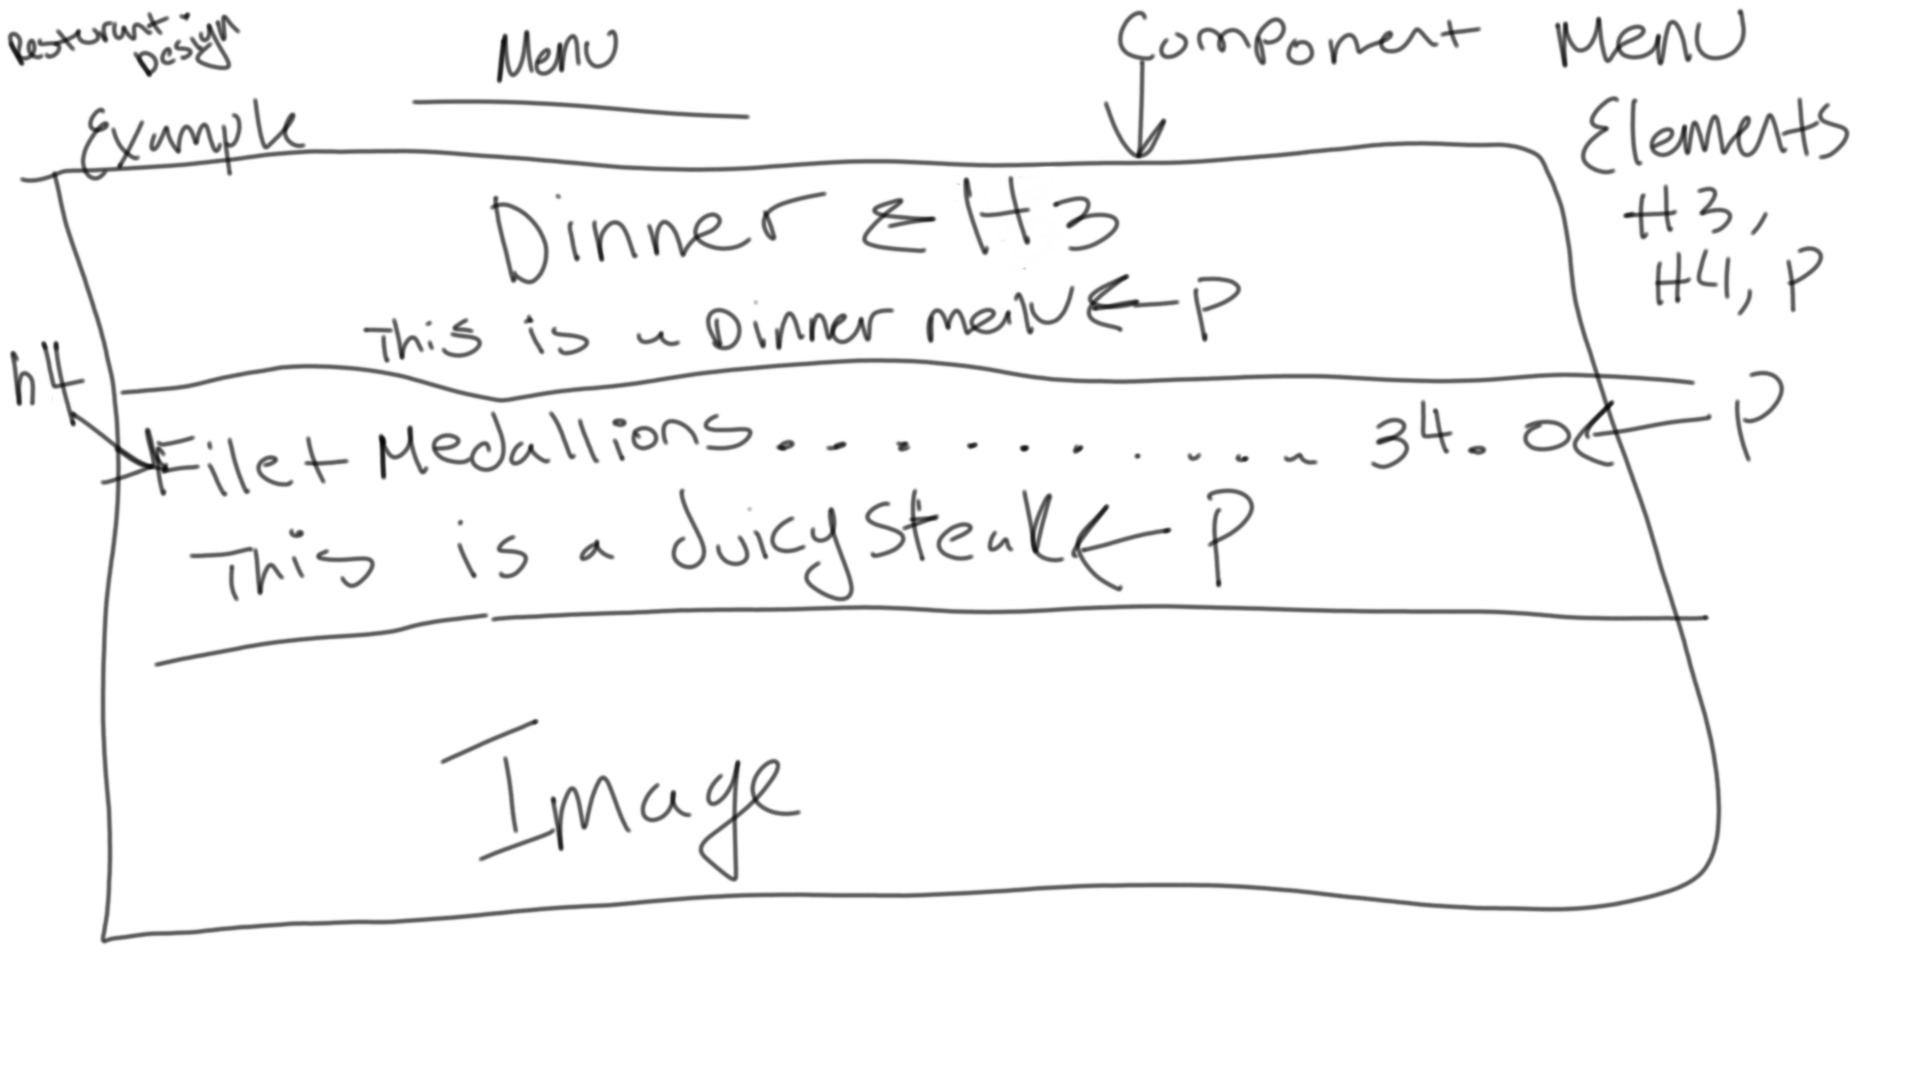 Resturant Design
Example
Menu
Component Menu
Elements
H3,
H4, P
Dinner ← H3
This is a Dinner menu ← P
h4
Filet Medallions............. 34.0 ← P
This is a Juicy Steak ← P
Image